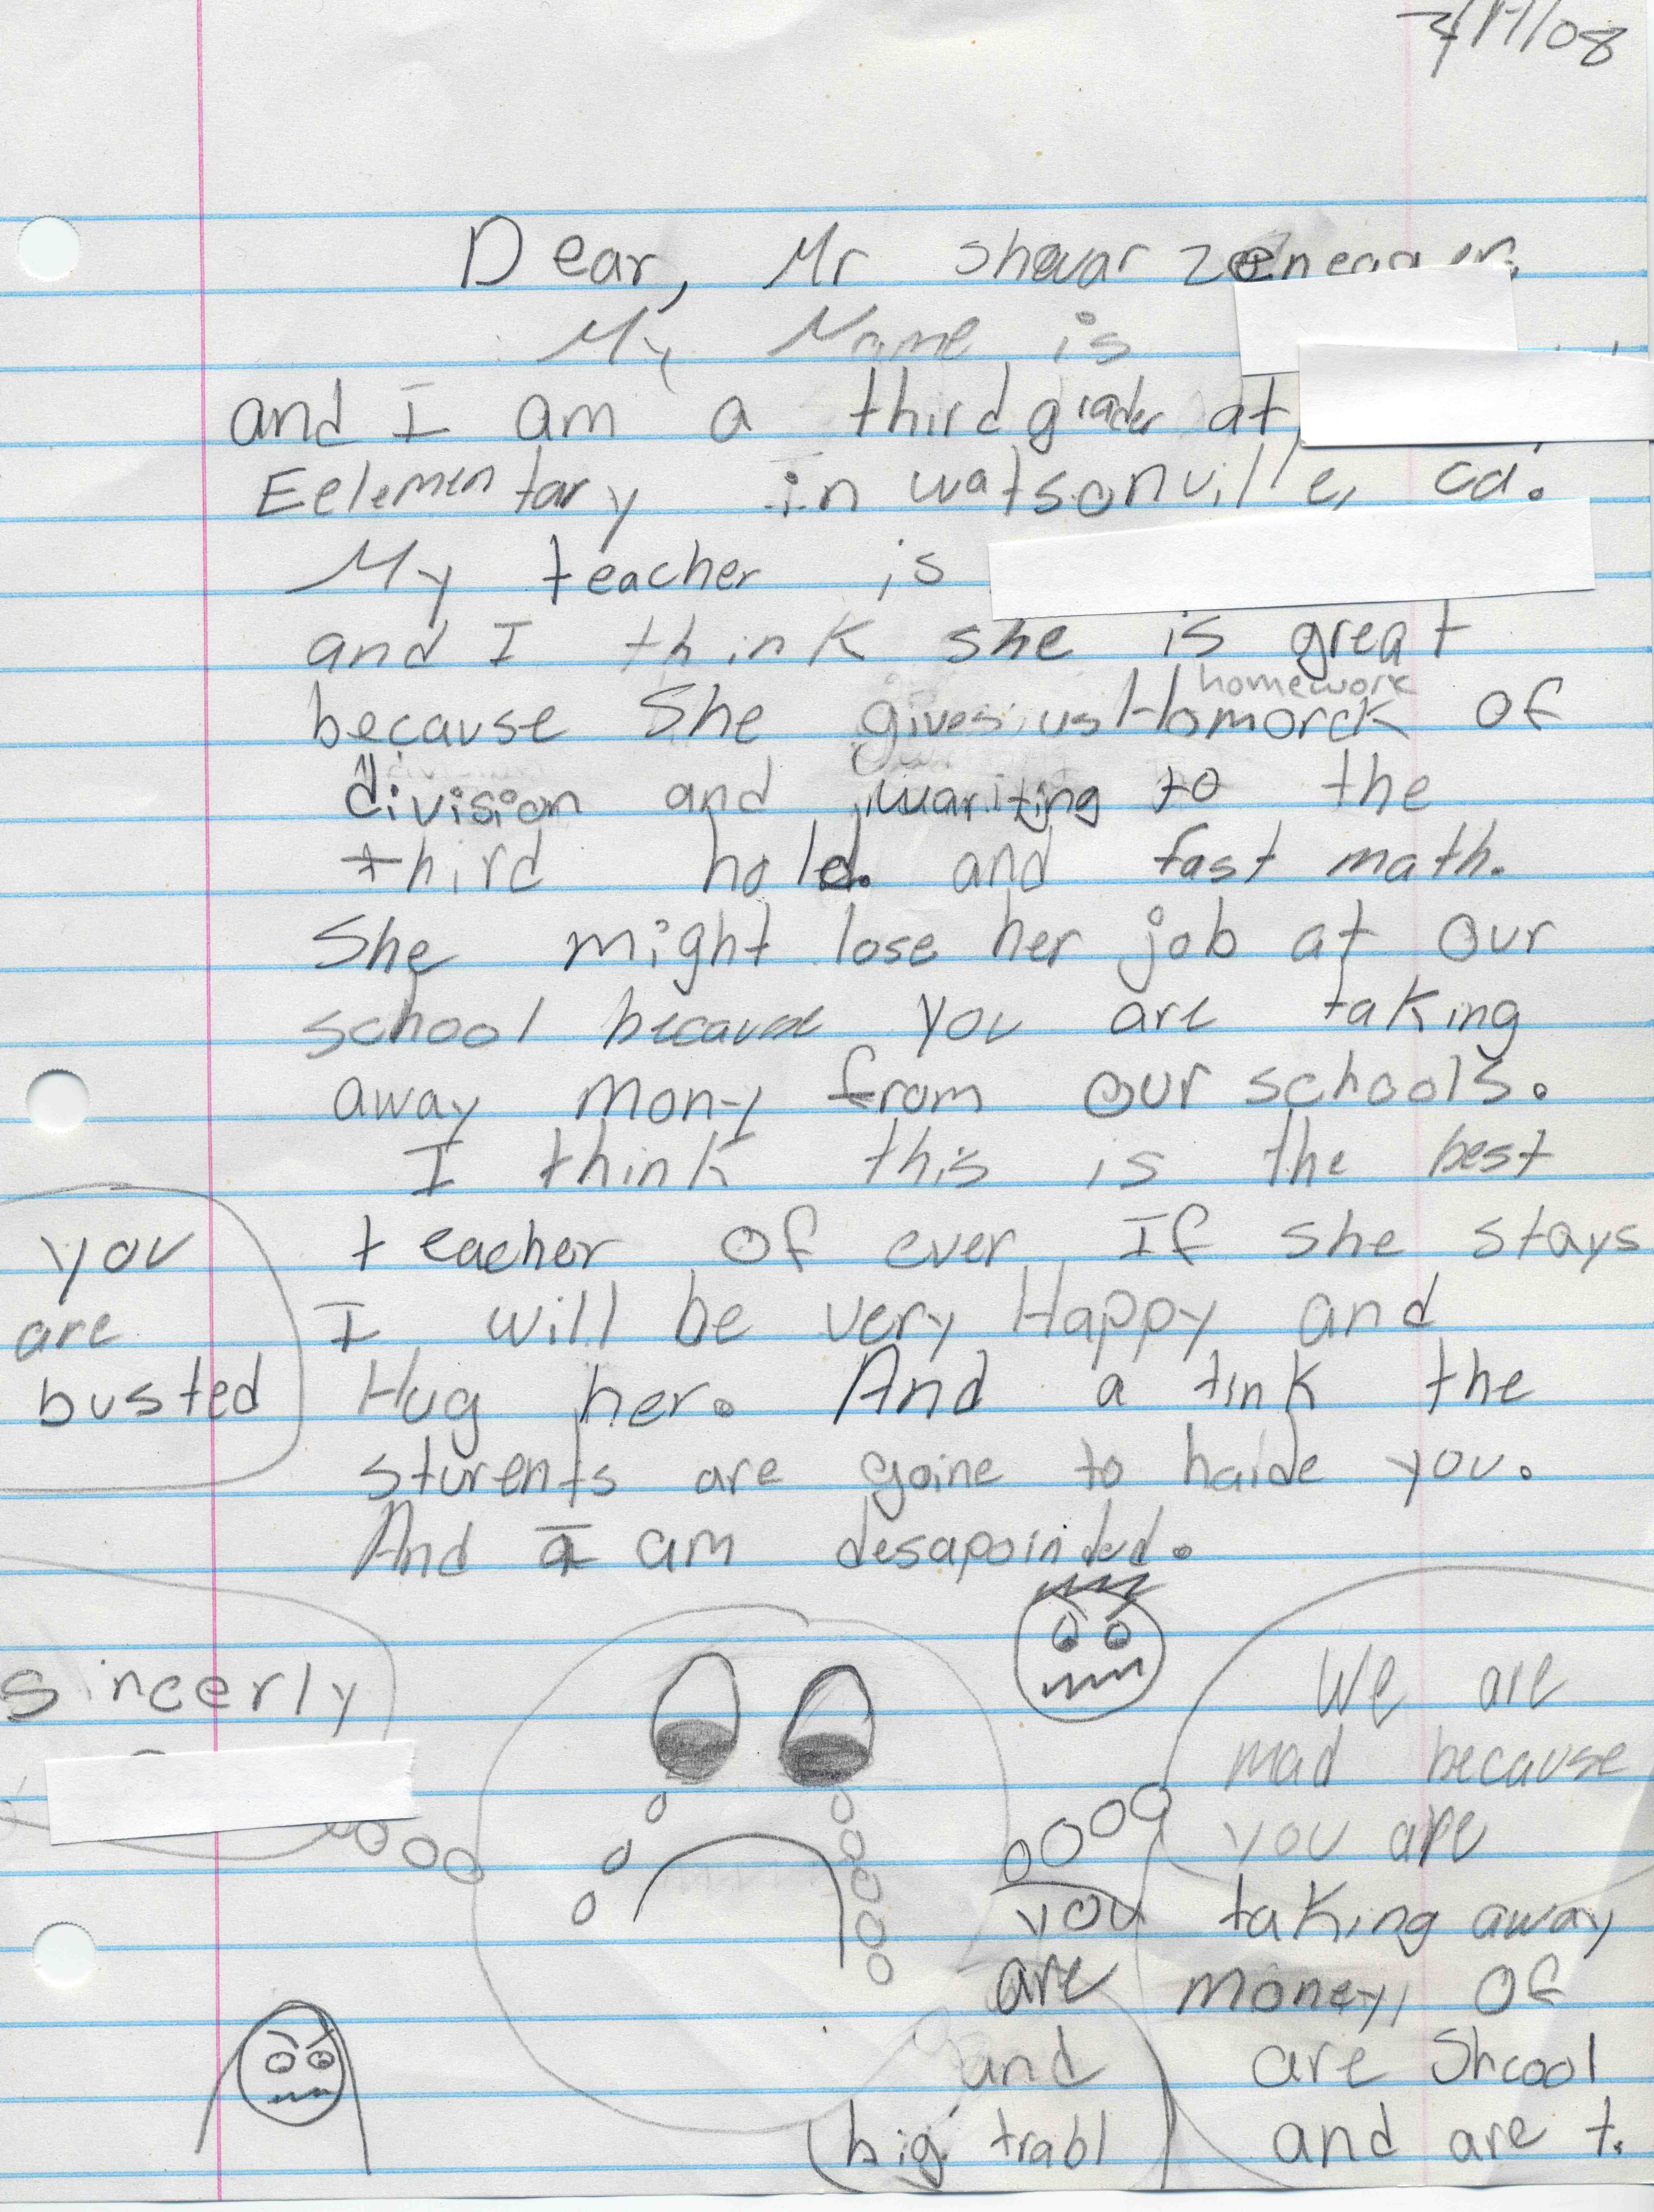 3/17/08
Dear, Mr shwarzeneager,
My Name is
and I am a third grader at
Eelementary in watsonville, ca.
My teacher is
and I think she is great
homework
because She gives us Homorck of
division and wariting to the
third hold. and fast math.
She might lose her job at our
school because you are taking
away mony from our schools.
I think this is the best
teacher of ever If she stays
I will be very Happy and
Hug her. And a tink the
sturents are goine to haide you.
And I am desapointed.
you
are
busted
sincerly
We are
mad because
you are
taking away
money, of
are Shcool
and are t.
you
are
and
big trabl